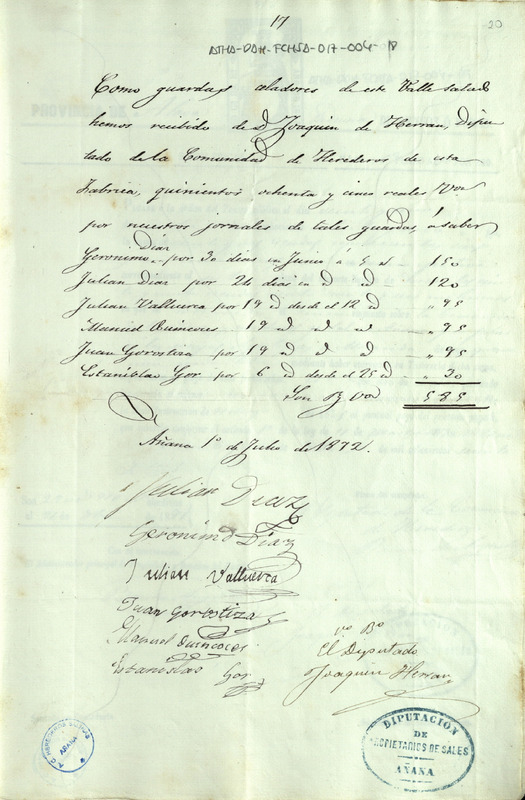 17
20
ATHA-DAH-FCHSA-017-004-18
Como guardas celadores de este Valle salado
hemos recibido de D Joaquin de Herran, Dipu
tado de la Comunidad de Herederos de esta
Fabrica, quinientos ochenta y cinco reales Von
por nuestros jornales de tales guardas, á saber
Geronimo Diaz por 30 dias en Junio a 5 rl 150
Julian Diaz por 24 dias in id id 120
Julian Valluerca por 19 id desde el 12 id " 95
Manuel Quincoces 19 id id id " 95
Juan Gorostiza por 19 id id id " 95
Estanislao Gor por 6 id desde el 25 id " 30
Son R Von 585
Añana 1º de Julio de 1872.
Julian Diaz
Gerónimo Diaz
Julian Valluerca
Juan Gorostiza
Manuel Quincoces
Estanislao Gor
Vº Bº
El Diputado
Joaquin Herran
DIPUTACION
DE
PROPIETARIOS DE SALES
AÑANA
AÑANA